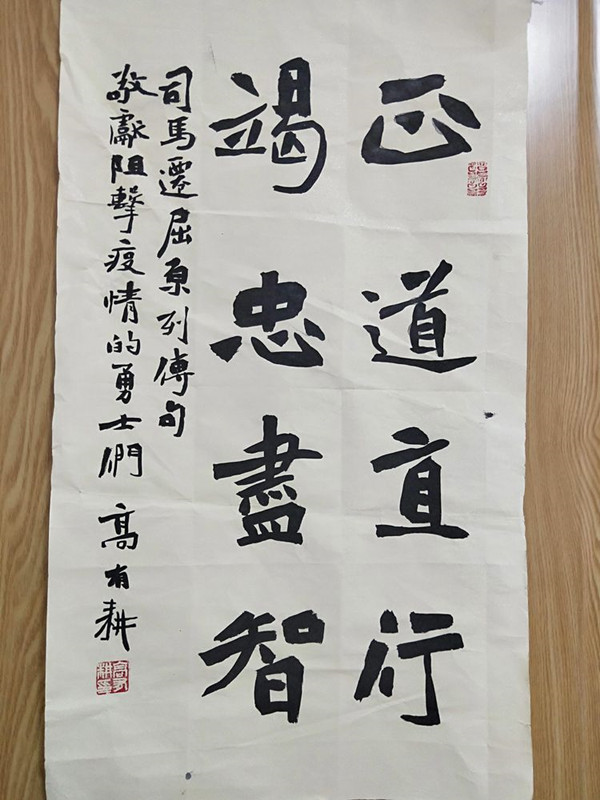 正道直行
竭忠盡智
司馬遷屈原列傳句
敬獻阻擊疫情的勇士們 高有耕